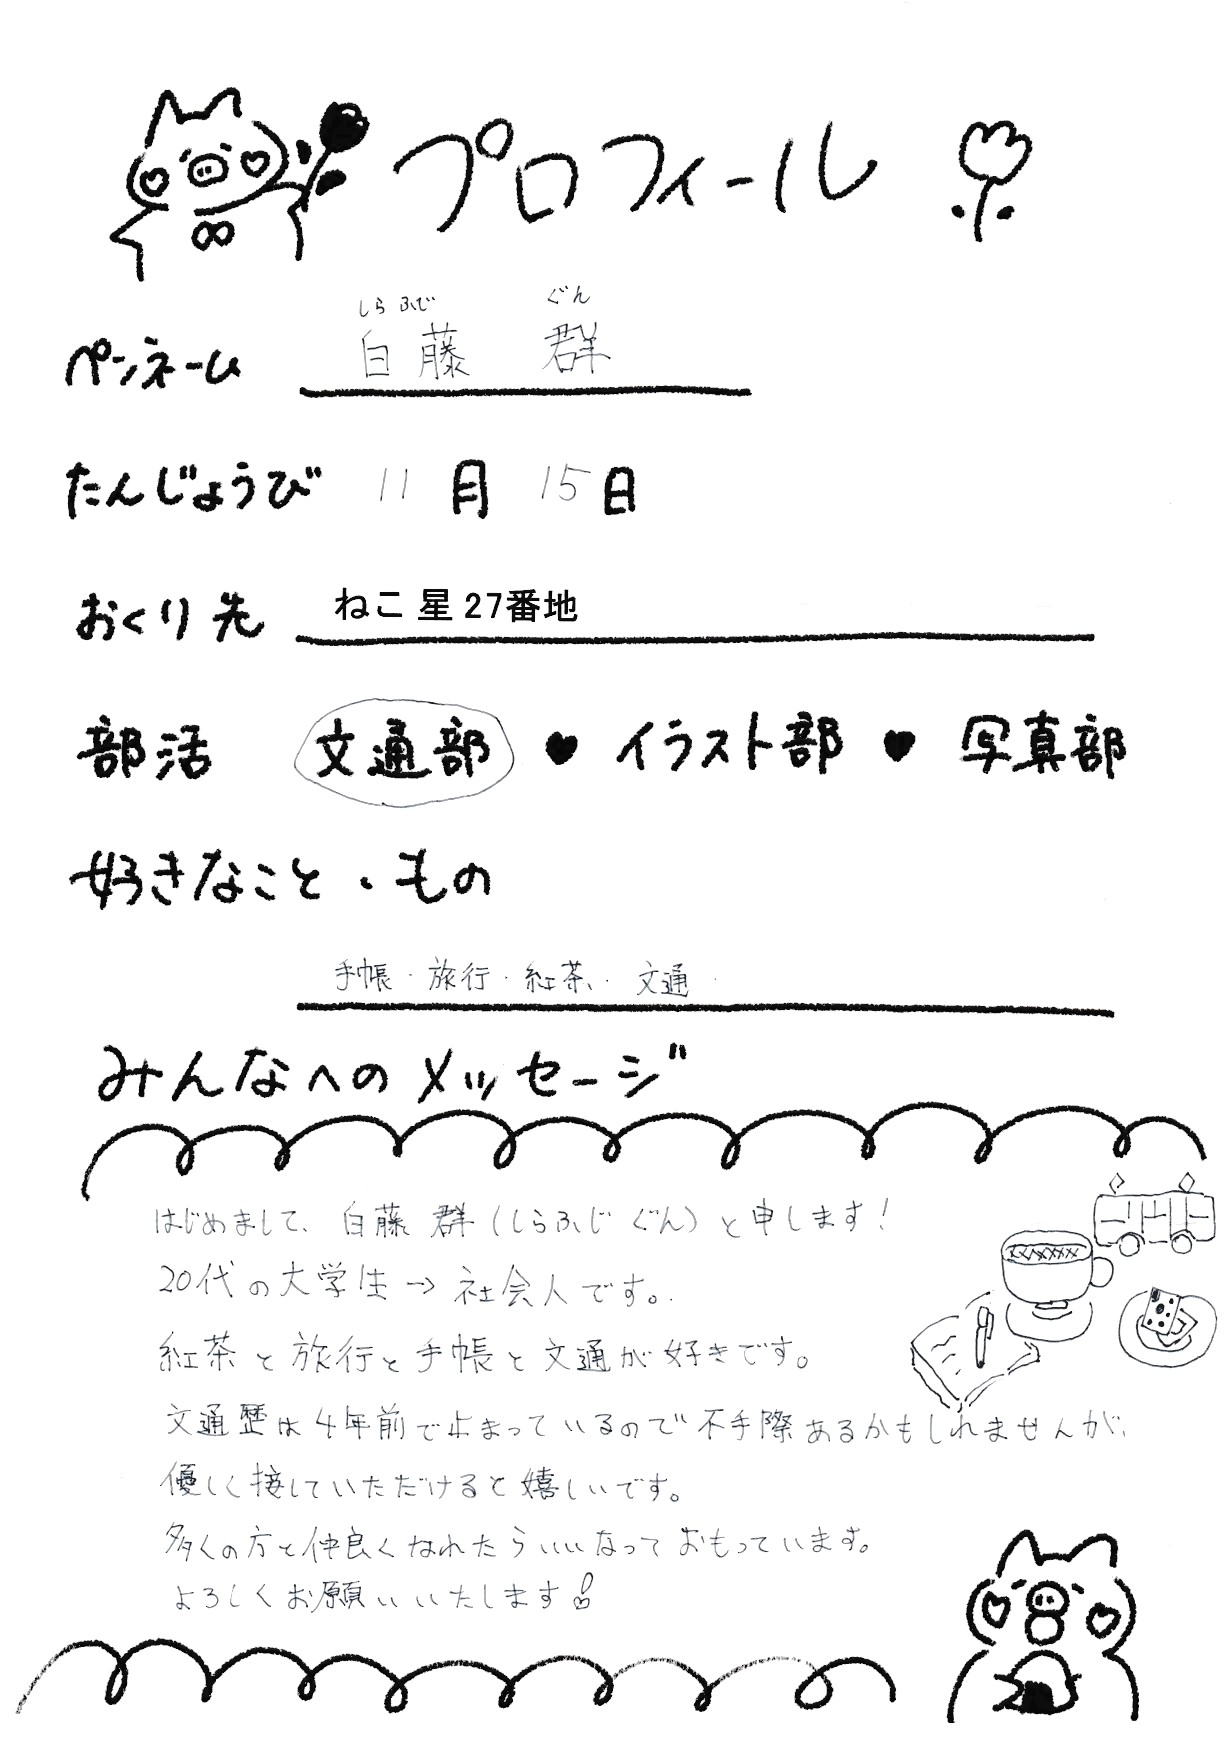 プロフィール
しらふじ ぐん
ペンネーム 白藤 群
たんじょうび 11月 15日
おくり先 ねこ 星 27番地
部活 文通部 ♥ イラスト部 ♥ 写真部
好きなこと・もの
手帳・旅行・紅茶・文通
みんなへのメッセージ
はじめまして、白藤 群(しらふじ ぐん)と申します!
20代の大学生→社会人です。
紅茶と旅行と手帳と文通が好きです。
文通歴は4年前で止まっているので不手際あるかもしれませんが、
優しく接していただけると嬉しいです。
多くの方と仲良くなれたらいいなっておもっています。
よろしくお願いいたします!